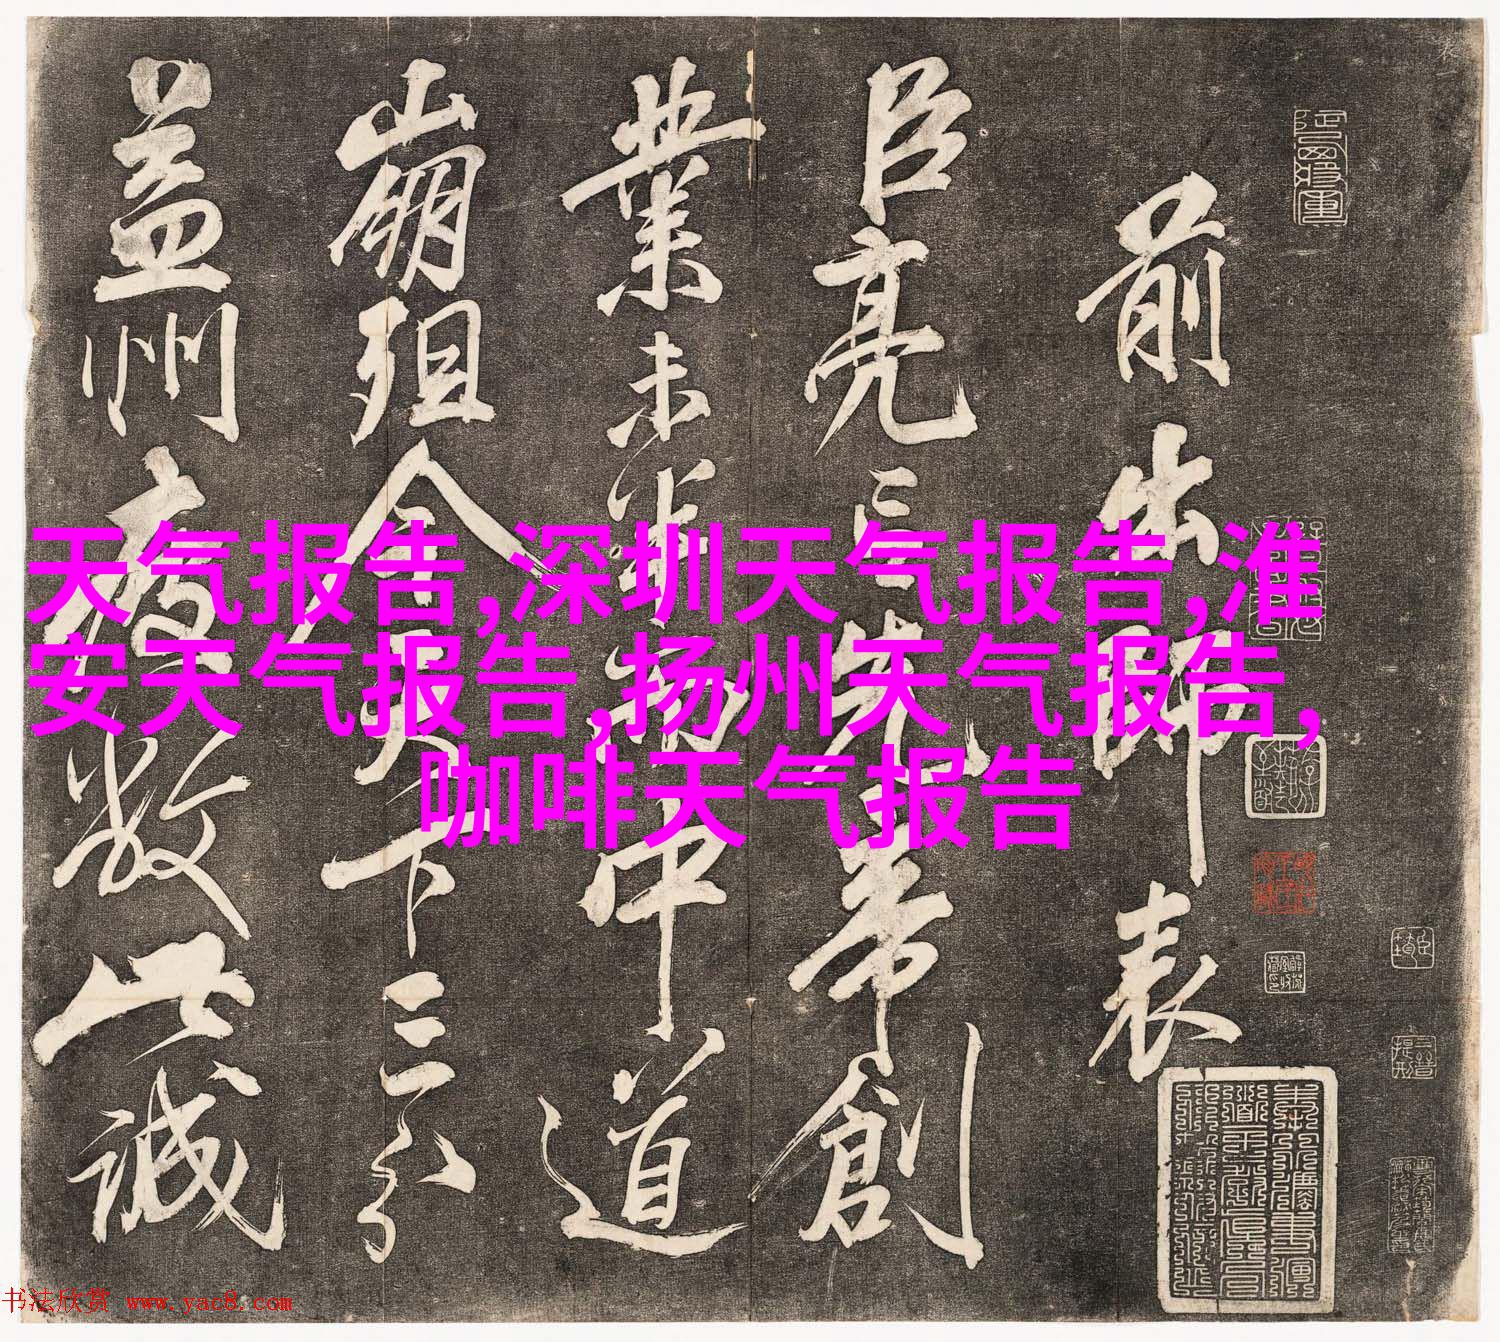 前出師表
臣亮言先帝創
業未半而中道
崩殂今天下三分
益州疲敝此誠
天气报告,深圳天气报告,淮
安天气报告,扬州天气报告,
咖啡天气报告
书法欣赏 www.yac8.com